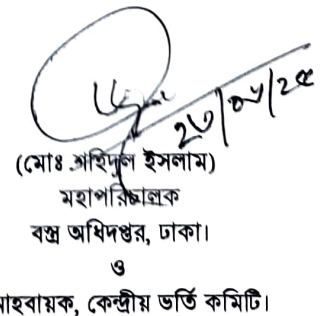 ২৩/০৮/২৫
(মোঃ শহিদুল ইসলাম)
মহাপরিচালক
বস্ত্র অধিদপ্তর, ঢাকা।
ও
আহবায়ক, কেন্দ্রীয় ভর্তি কমিটি।